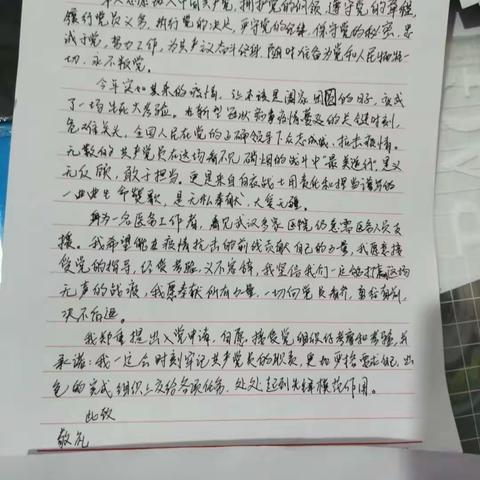 本人志愿加入中国共产党，拥护党的纲领，遵守党的章程，
履行党员义务，执行党的决定，严守党的纪律，保守党的秘密，忠
诚于党，努力工作，为共产主义奋斗终身，随时准备为党和人民牺牲一
切，永不叛党。
今年突如其来的疫情，让本该是阖家团圆的日子，变成
了一场生死大考验。在新型冠状病毒疫情蔓延的关键时刻，
危难关头，全国人民在党的正确领导下众志成城，抗击疫情。
无数的共产党员在这场看不见硝烟的战斗中"最美逆行"，义
无反顾，敢于担当。更是来自前线战士用责任和担当谱写的
一曲曲生命赞歌，是无私奉献，大爱无疆。
身为一名医务工作者，看见武汉多家医院仍急需医务人员支
援。我希望能在疫情抗击的前线贡献自己的力量，我愿意接
受党的指导，经受考验，义不容辞，我坚信我们一定能打赢这场
无声的战疫，我愿奉献所有力量，一切向党员看齐，勇往直前，
决不后退。
我郑重提出入党申请，自愿接受党组织的考察和考验，并
承诺：我一定会时刻牢记共产党员的职责，更加严格要求自己，出
色的完成组织上交给各项任务，处处起到先锋模范作用。
此致
敬礼